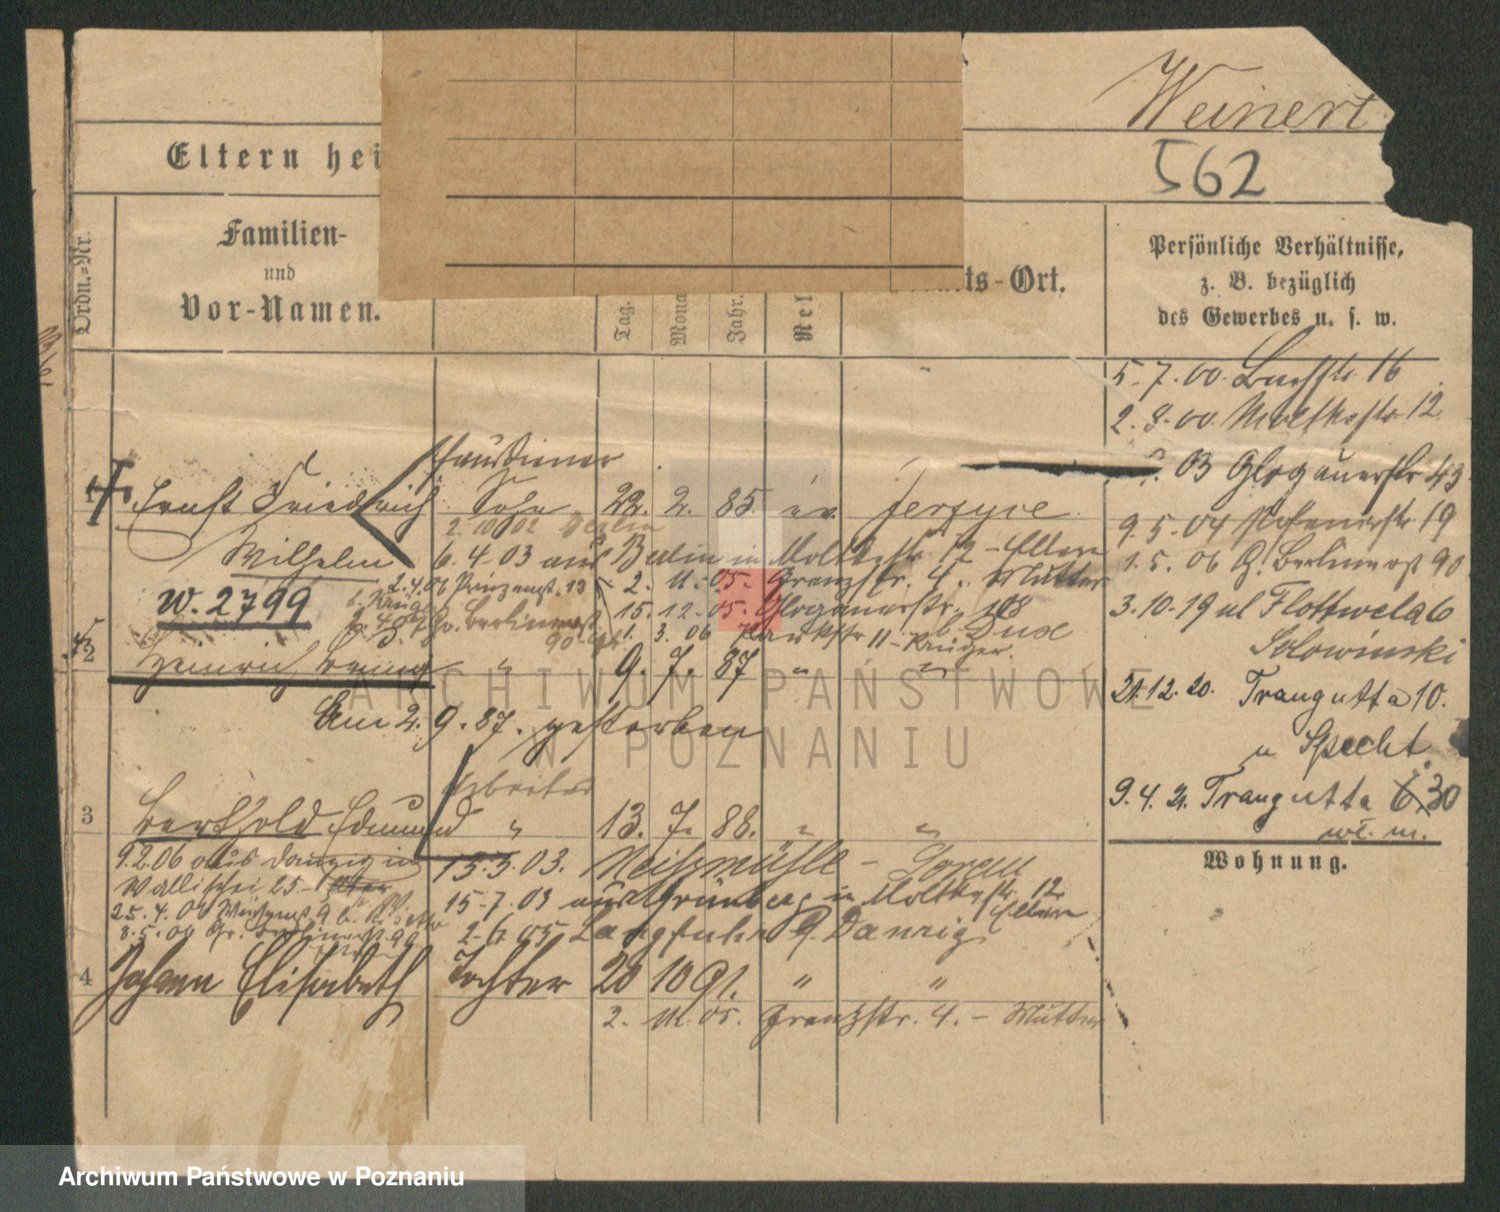 Weinert
562
Eltern hei
Ordn.=Nr.
Familien-
und
Vor-Namen.
Tag.
Mona
Jahr.
Rel
ts-Ort.
Persönliche Verhältnisse,
z. B. bezüglich
des Gewerbes u. s. w.
5.7.00. Buchstr 16
2.8.00 Moltkestr 12
03 Glogauerstr 43
9.5.04 Posenerstr 19
1.5.06 G. Berlinerst 90
3.10.19 ul Flottwela 6
Słowiński
21.12.20. Traugutta 10.
u Specht
9.4.21. Traugutta 30
wł. m.
Wohnung.
Haustierer
1 Ernst Friedrich Sohn 22. 2. 85. ev. Jersyce
2.10.02 Berlin
Wilhelm 6.4.03 aus Berlin in Moltkestr. 12 - Eltern
2.4.06 Prinzenst. 13
2. 11. 05. Grenzstr. 4. Mutter
W. 2799
b. Krüger
15.12.05. Glogauerstr. 108
Gr. Berlinerst.
90
1. 3. 06 Parkstr 11 - Krüger.
2 Heinrich " 9. 7. 87 " "
Am 2.9.87. gestorben
Arbeiter
3 Berthold Edmund " 13. 7. 88. " "
9.2.06 aus Danzig in
15.5.03. Neissmühle -
Wallischei 25
15.7.03 aus Grünberg in Moltkestr. 12
Eltern
8.5.06 Gr. Berlinerst. 90
2.6.05 Langfuhr b. Danzig
4 Johanna Elisabeth Tochter 20 10 91. " "
2. 11. 05. Grenzstr. 4. - Mutter
ARCHIWUM PAŃSTWOWE
W POZNANIU
Archiwum Państwowe w Poznaniu